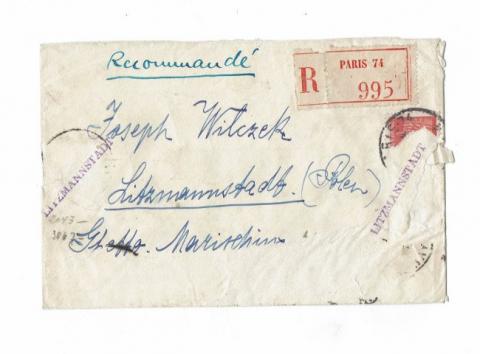 Recommandé
PARIS 74
R 995
Joseph Witczek
LITZMANNSTADT
LITZMANNSTADT
Litzmannstadt. (Polen)
Ghetto Marischin